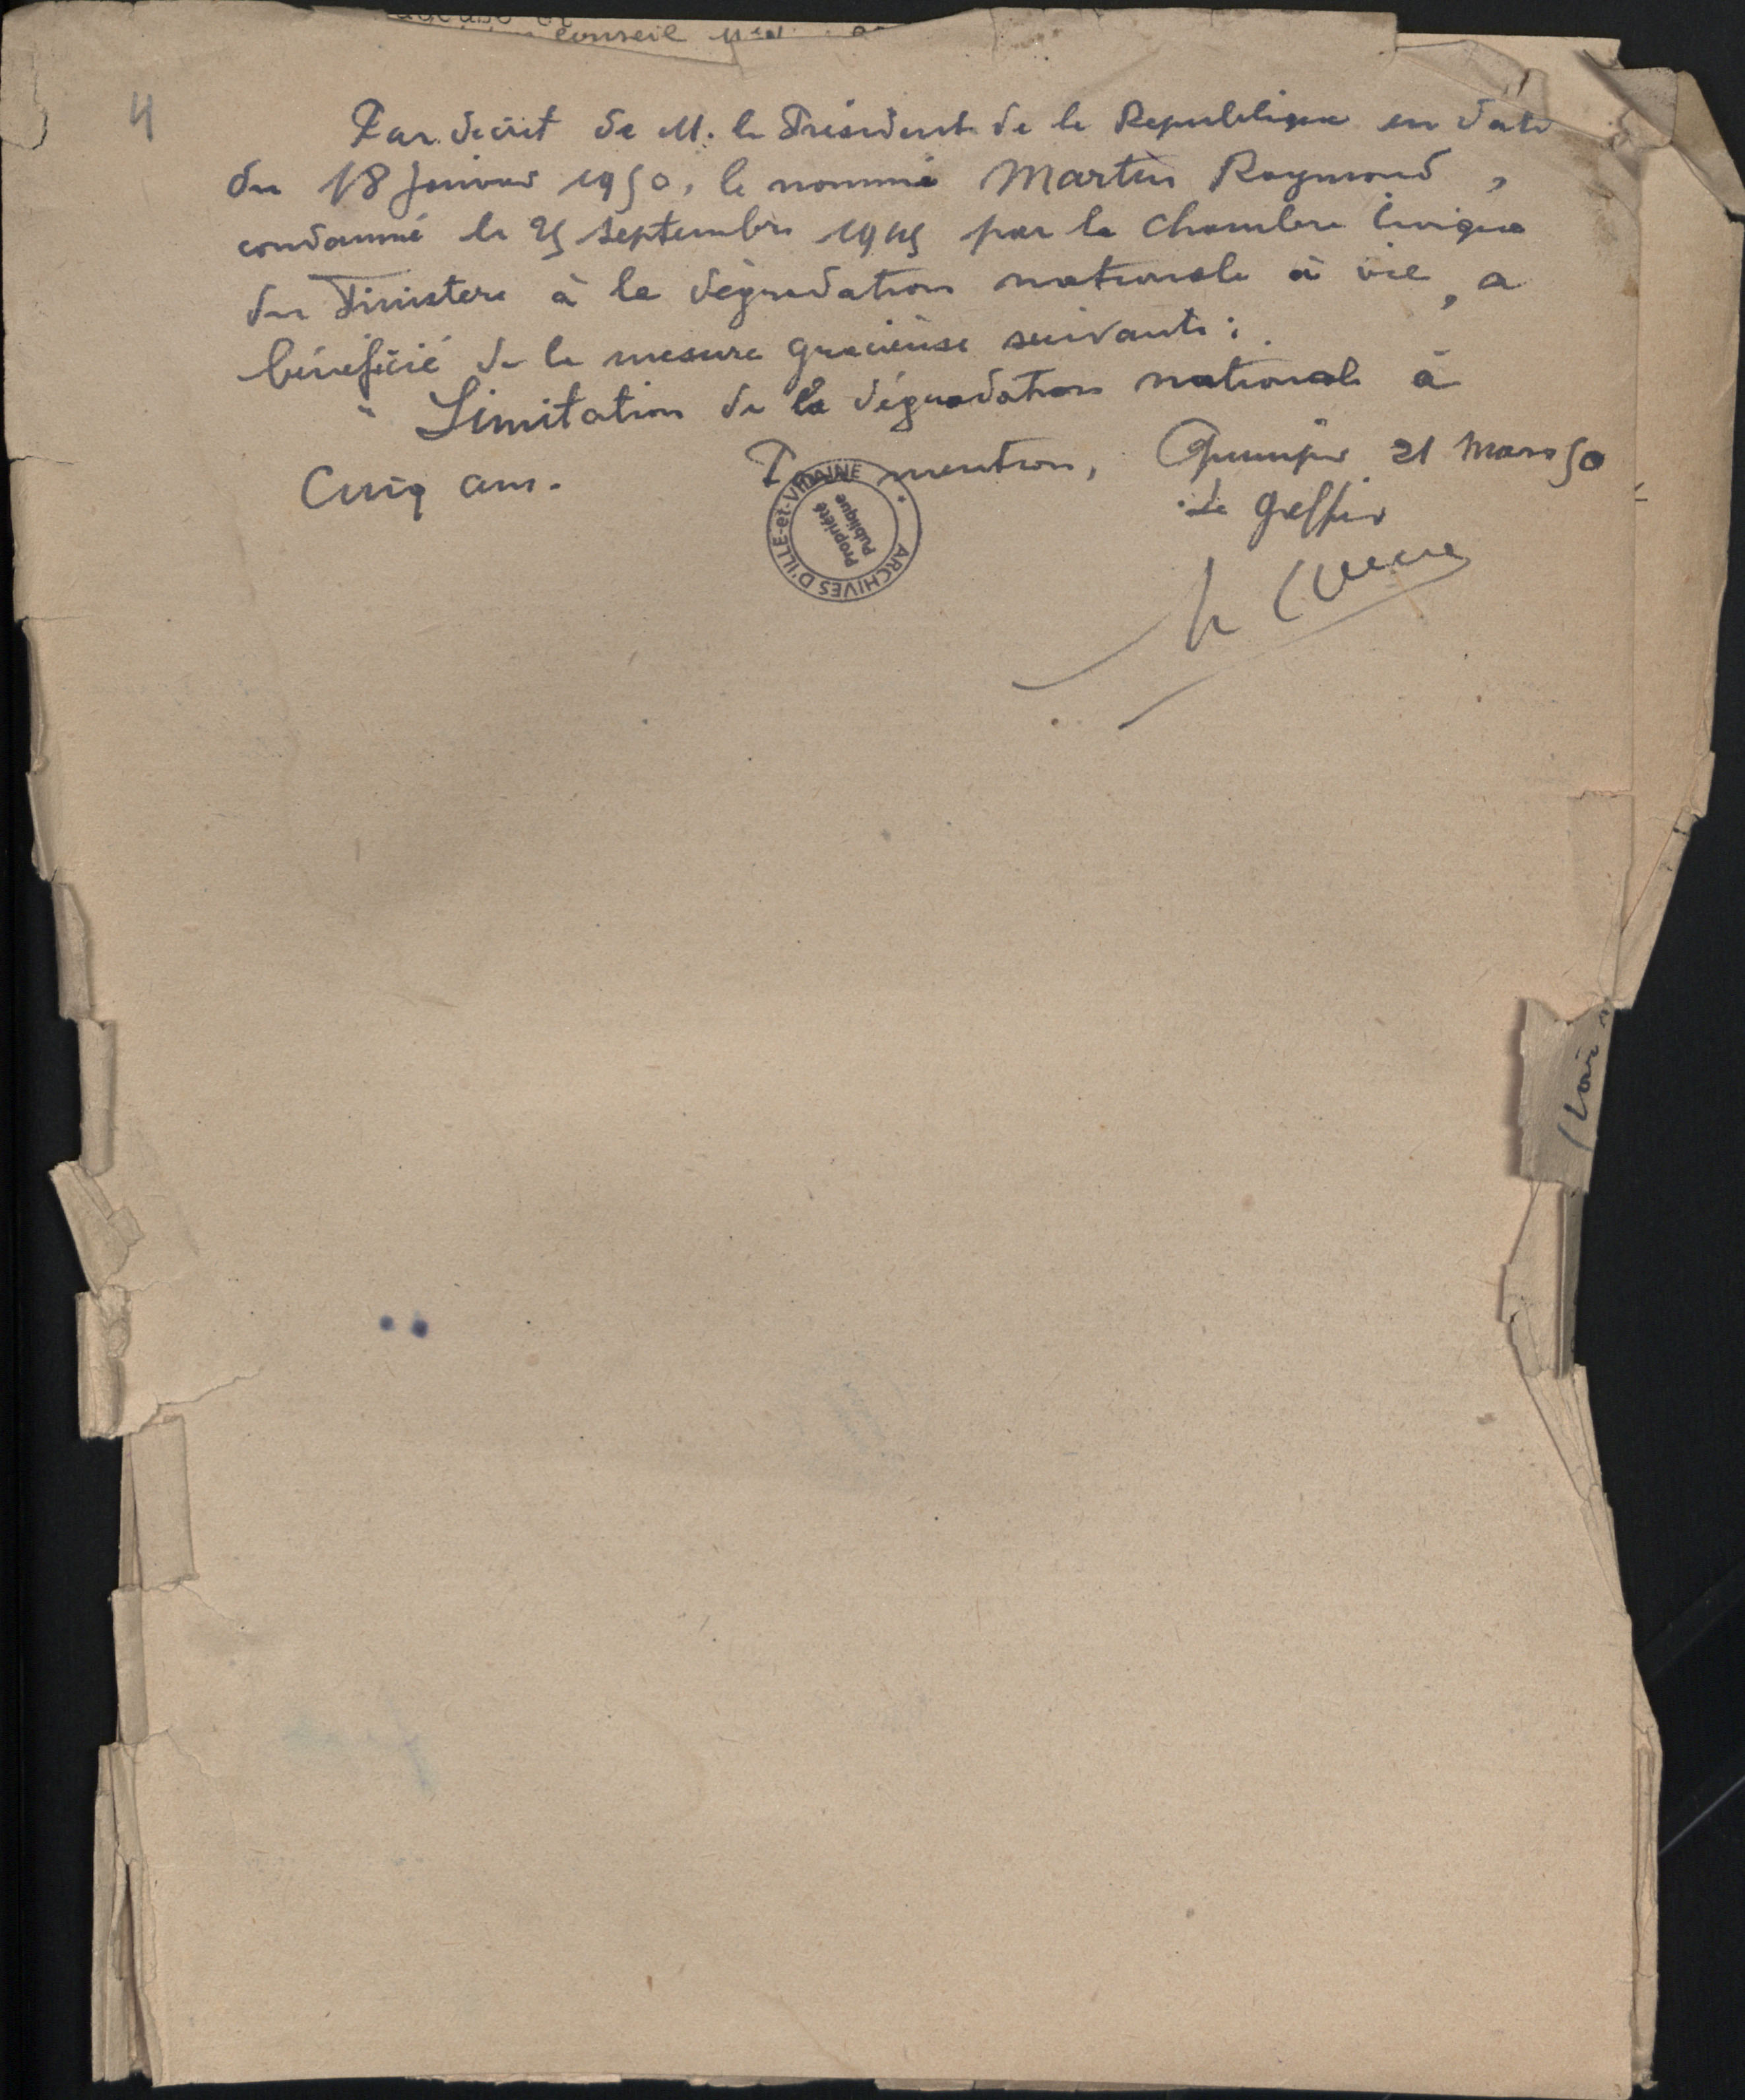 conseil
4
Par decret de M. le Président de la Republique en date
du 18 Janvier 1950, le nommé Martin Raymond,
condamné le 25 septembre 1945 par la Chambre Civique
du Finistere à la dégradation nationale à vie, a
bénéficié de la mesure gracieuse suivante :
" Limitation de la dégradation nationale à
Cinq ans.
Pr mention, Quimper 21 Mars 50
Le Greffier
ARCHIVES D'ILLE-et-VILAINE
Propriété
Publique
(Voir